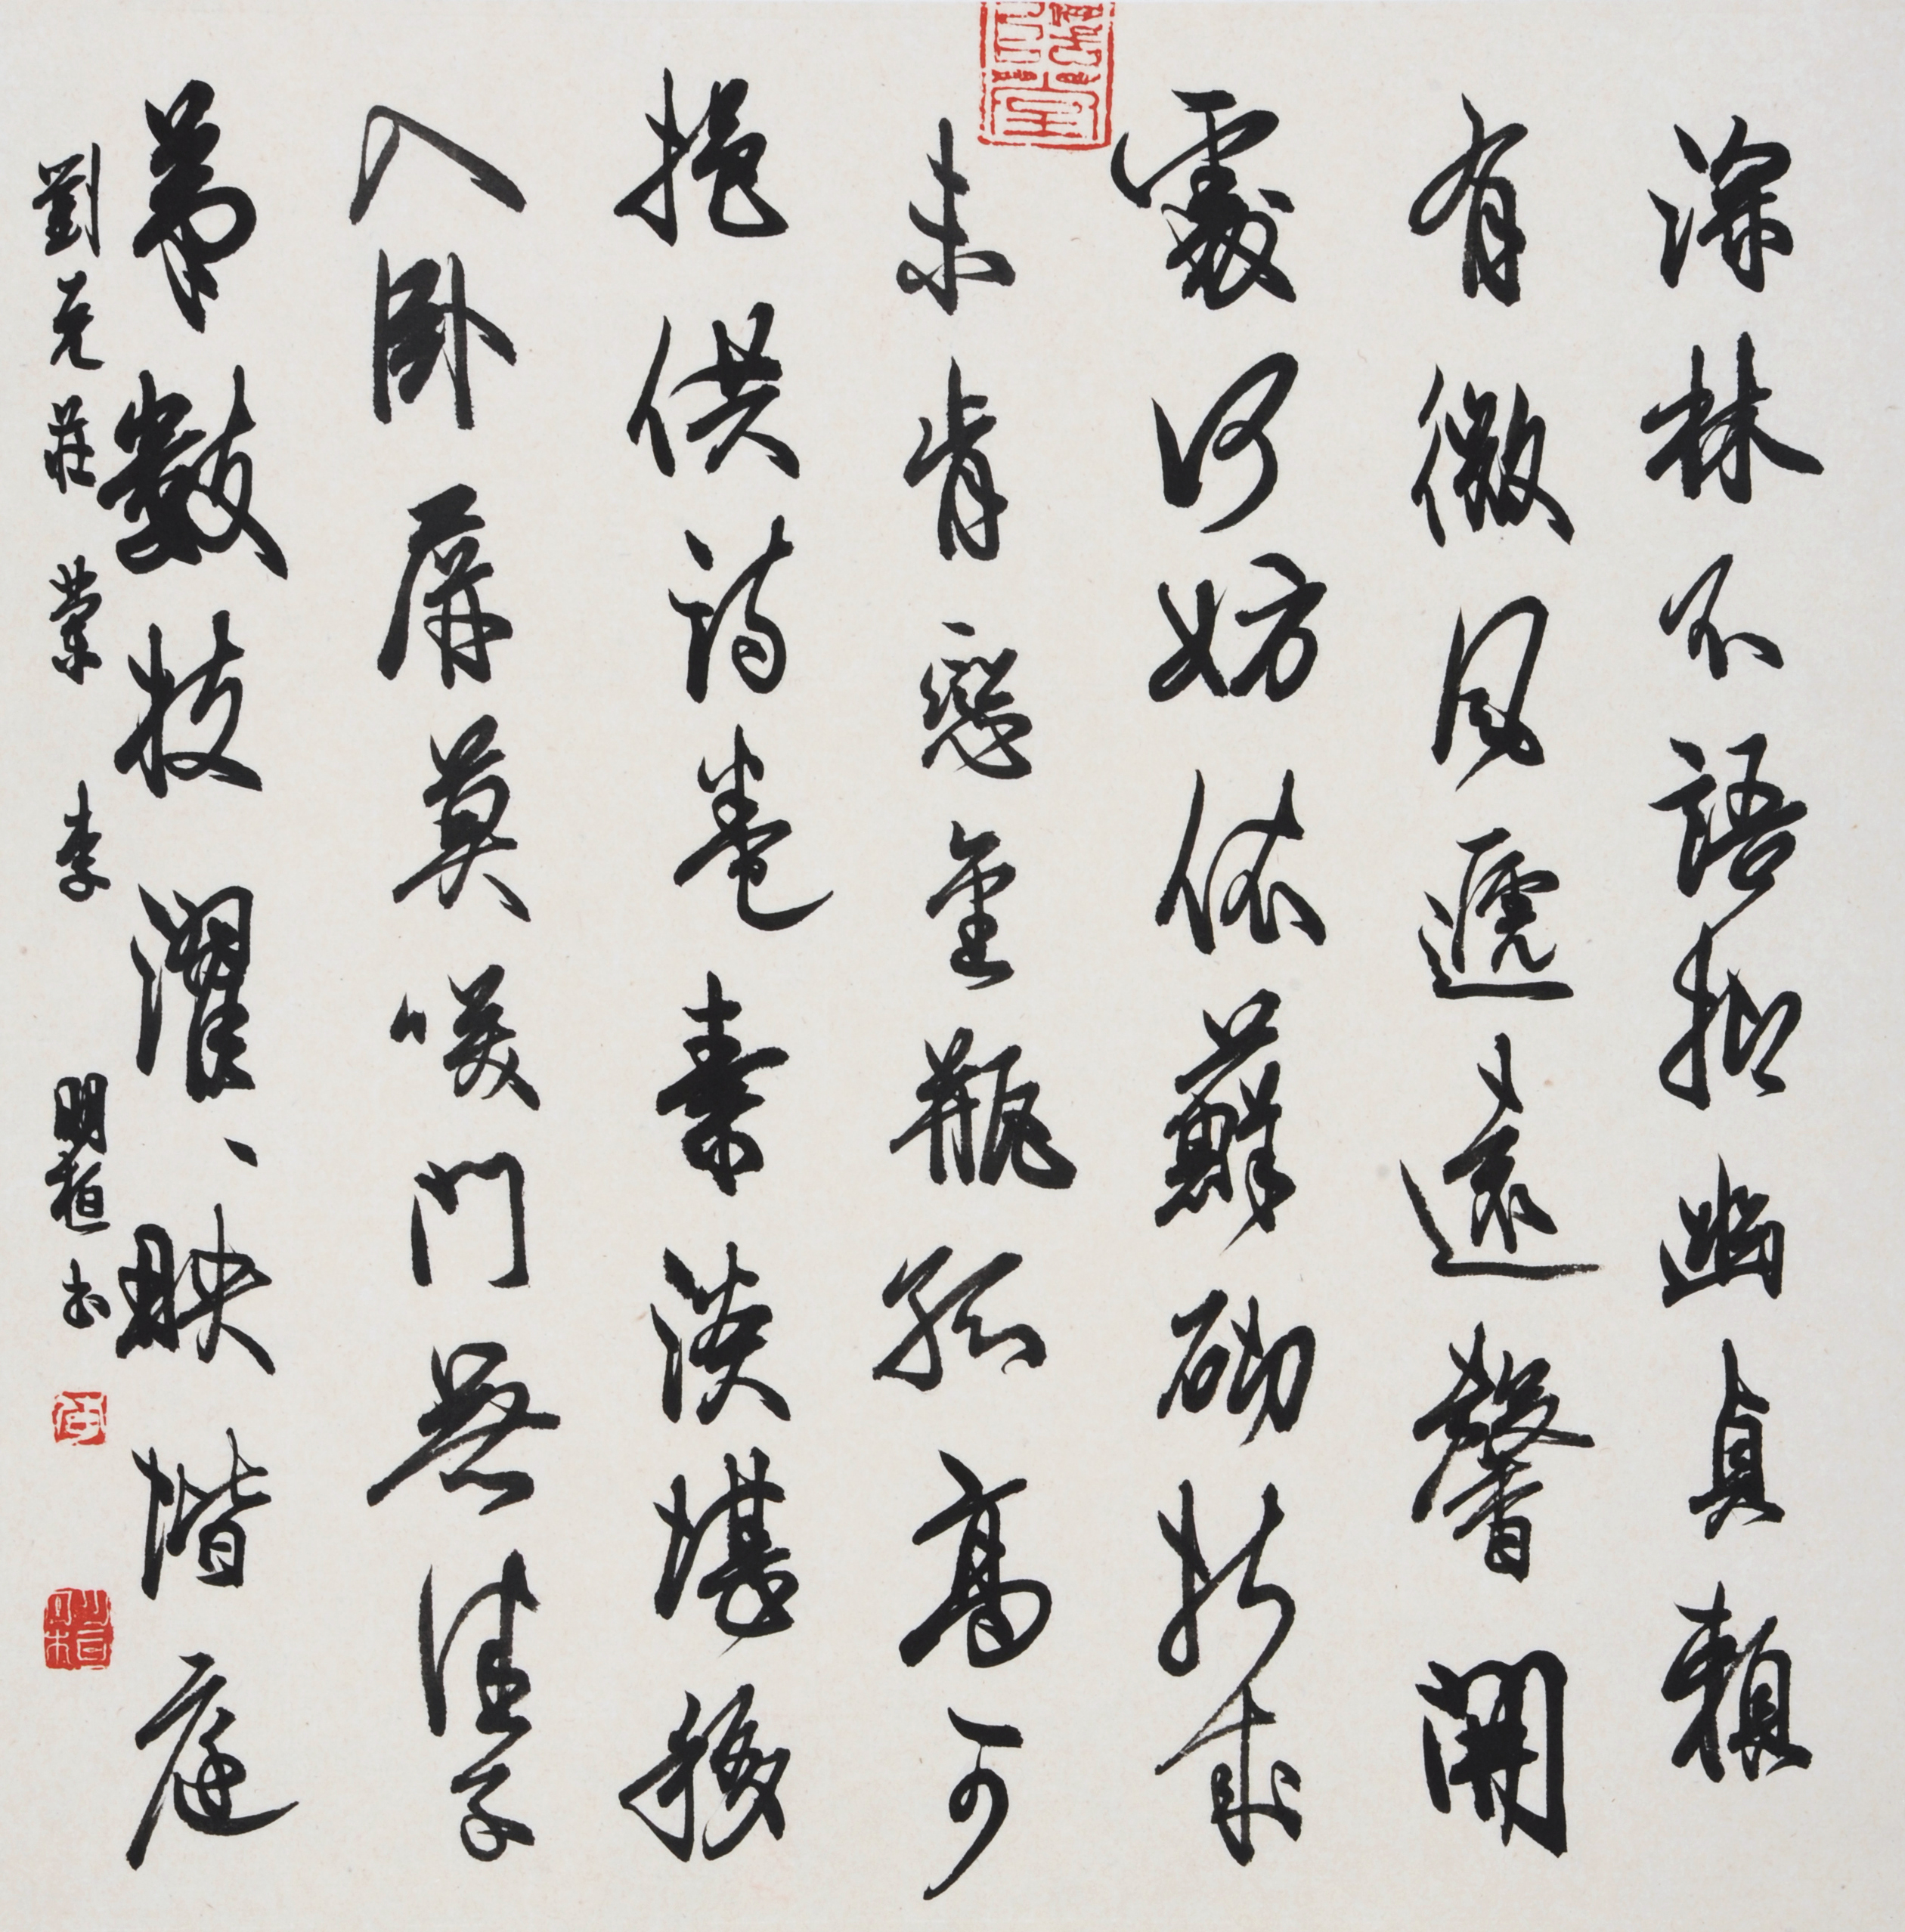 深林不語抱幽貞賴
有微風遞遠馨開
處何妨依蘚砌折來
未肯戀金瓶孤高可
挹供詩卷素淡堪移
入卧屏莫咲門無佳子
弟數枝濯、映階庭
劉克莊 李明桓书